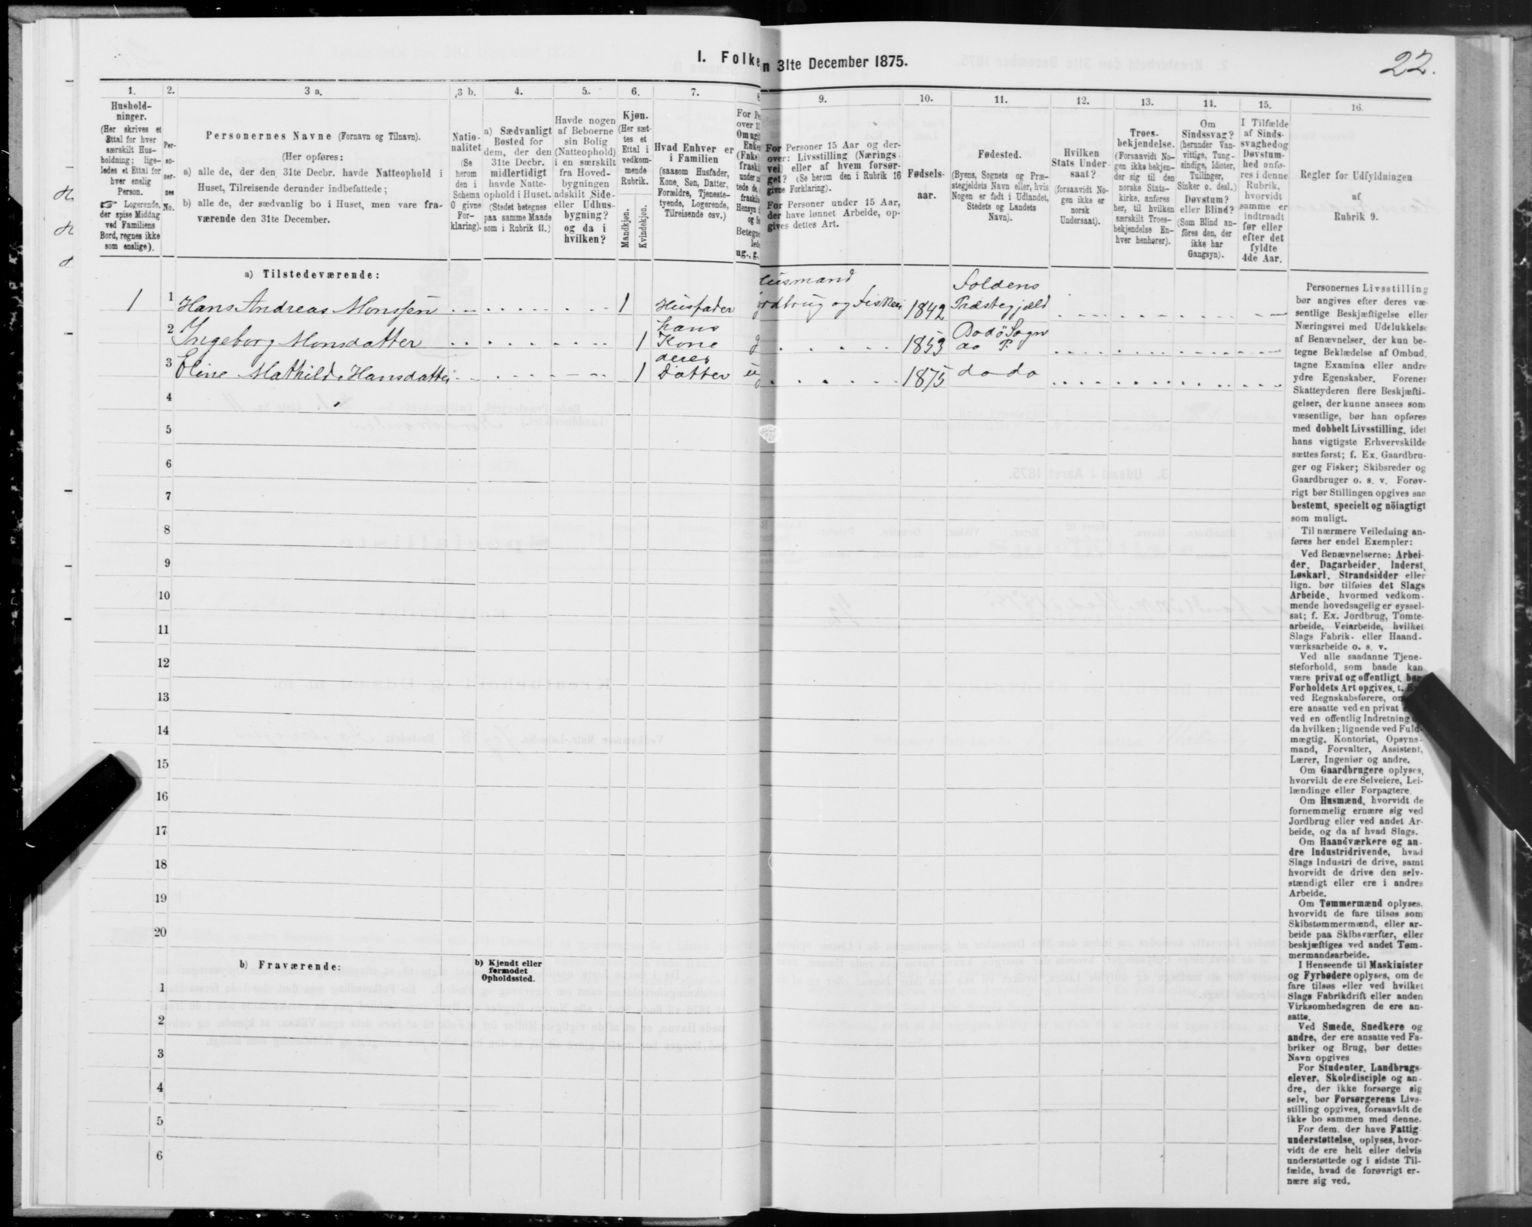 I. Folke n 31te December 1875.
22.
1.
Hushold-
ninger.
(Her skrives et
Ettal for hver
særskilt Hus-
holdning; lige-
ledes et Ettal for
hver enslig
Person.
☞ Logerende,
der spise Middag
ved Familiens
Bord, regnes ikke
som enslige).
2.
Per-
so-
ner-
nes
No.
3 a.
Personernes Navne (Fornavn og Tilnavn).
(Her opføres:
a) alle de, der den 31te Decbr. havde Natteophold i
Huset, Tilreisende derunder indbefattede;
b) alle de, der sædvanlig bo i Huset, men vare fra-
værende den 31te December.
3 b.
Natio-
nalitet
(Se
herom
den i
Schema
O givne
For-
klaring).
4.
a) Sædvanligt
Bosted for
dem, der den
31te Decbr.
midlertidigt
havde Natte-
ophold i Huset.
(Stedet betegnes
paa samme Maade
som i Rubrik 11.)
5.
Havde nogen
af Beboerne
sin Bolig
(Natteophold)
i en særskilt
fra Hoved-
bygningen
adskilt Side-
eller Udhus-
bygning?
og da i
hvilken?
6.
Kjøn.
(Her sæt-
tes et
Ettal i
vedkom-
mende
Rubrik.
Mandkjøn.
Kvindekjøn.
7.
Hvad Enhver er
i Familien
(saasom Husfader,
Kone, Søn, Datter,
Forældre, Tjeneste-
tyende, Logerende,
Tilreisende osv.)
9.
For Personer 15 Aar og der-
over: Livsstilling (Nærings-
vei eller af hvem forsør-
get? (Se herom den i Rubrik 16
givne Forklaring).
For Personer under 15 Aar,
der have lønnet Arbeide, op-
gives dettes Art.
10.
Fødsels-
aar.
11.
Fødested.
(Byens, Sognets og Præ-
stegjeldets Navn eller, hvis
Nogen er født i Udlandet,
Stedets og Landets
Navn).
12.
Hvilken
Stats Under-
saat?
(forsaavidt No-
gen ikke er
norsk
Undersaat).
13.
Troes-
bekjendelse.
(Forsaavidt No-
gen ikke bekjen-
der sig til den
norske Stats-
kirke, anføres
her, til hvilken
særskilt Troes-
bekjendelse En-
hver henhører).
14.
Om
Sindssvag?
(herunder Van-
vittige, Tung-
sindige, Idioter,
Tullinger,
Sinker o. desl.)
Døvstum?
eller Blind?
(Som Blind an-
føres den, der
ikke har
Gangsyn).
15.
I Tilfælde
af Sinds-
svaghed og
Døvstum-
hed anfø-
res i denne
Rubrik,
hvorvidt
samme er
indtraadt
før eller
efter det
fyldte
4de Aar.
16.
Regler for Udfyldningen
af
Rubrik 9.
a) Tilstedeværende:
1 1 Hans Andreas Monssen 1 Husfader Husmand Jordbrug og Fiskeri 1842 Foldens Præstegjeld
2 Ingeborg Monsdatter 1 hans Kone g 1853 Bodö Sogn do P.
3 Eline Mathilde Hansdatter 1 deres Datter ug 1875 do do
4
5
6
7
8
9
10
11
12
13
14
15
16
17
18
19
20
b) Fraværende:
b) Kjendt eller
formodet
Opholdssted.
1
2
3
4
5
6
Personernes Livsstilling
bør angives efter deres væ-
sentlige Beskjæftigelse eller
Næringsvei med Udelukkelse
af Benævnelser, der kun be-
tegne Beklædelse af Ombud,
tagne Examina eller andre
ydre Egenskaber. Forener
Skatteyderen flere Beskjæfti-
gelser, der kunne ansees som
væsentlige, bør han opføres
med dobbelt Livsstilling, idet
hans vigtigste Erhvervskilde
sættes først; f. Ex. Gaardbru-
ger og Fisker; Skibsreder og
Gaardbruger o. s. v. Forøv-
rigt bør Stillingen opgives saa
bestemt, specielt og nöiagtigt
som muligt.
Til nærmere Veiledning an-
føres her endel Exempler:
Ved Benævnelserne: Arbei-
der, Dagarbeider, Inderst,
Løskarl, Strandsidder eller
lign. bør tilføies det Slags
Arbeide, hvormed vedkom-
mende hovedsagelig er syssel-
sat; f. Ex. Jordbrug, Tomte-
arbeide, Veiarbeide, hvilket
Slags Fabrik- eller Haand-
værksarbeide o. s. v.
Ved alle saadanne Tjene-
steforhold, som baade kan
være privat og offentligt, bør
Forholdets Art opgives, t.
ved Regnskabsførere, om
ere ansatte ved en privat
ved en offentlig Indretning
da hvilken; lignende ved Fuld-
mægtig, Kontorist, Opsyns-
mand, Forvalter, Assistent,
Lærer, Ingeniør og andre.
Om Gaardbrugere oplyses,
hvorvidt de ere Selveiere, Lei-
lændinge eller Forpagtere.
Om Husmænd, hvorvidt de
fornemmelig ernære sig ved
Jordbrug eller ved andet Ar-
beide, og da af hvad Slags.
Om Haandværkere og an-
dre Industridrivende, hvad
Slags Industri de drive, samt
hvorvidt de drive den selv-
stændigt eller ere i andres
Arbeide.
Om Tømmermænd oplyses,
hvorvidt de fare tilsøs som
Skibstømmermænd, eller ar-
beide paa Skibsværfter, eller
beskjæftiges ved andet Tøm-
mermandsarbeide.
I Henseende til Maskinister
og Fyrbødere oplyses, om de
fare tilsøs eller ved hvilket
Slags Fabrikdrift eller anden
Virksomhedsgren de ere an-
satte.
Ved Smede, Snedkere og
andre, der ere ansatte ved Fa-
briker og Brug, bør dettes
Navn opgives
For Studenter, Landbrugs-
elever, Skoledisciple og an-
dre, der ikke forsørge sig
selv, bør Forsørgerens Livs-
stilling opgives, forsaavidt de
ikke bo sammen med denne.
For dem, der have Fattig-
understøttelse, oplyses, hvor-
vidt de ere helt eller delvis
understøttede og i sidste Til-
fælde, hvad de forøvrigt er-
nære sig ved.